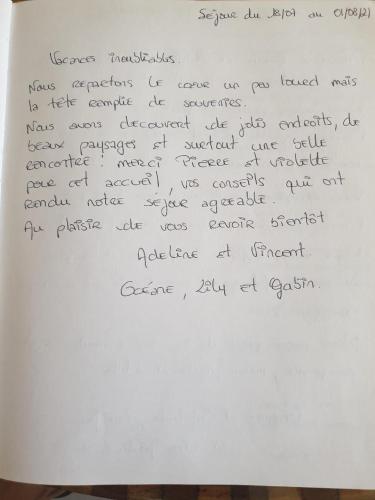 Séjour du 18/07 au 01/08/21
Vacances inoubliables.
Nous repartons le cœur un peu lourd mais
la tête remplie de souvenirs.
Nous avons découvert de jolis endroits, de
beaux paysages et surtout une belle
rencontre : merci Pierre et Violette
pour cet accueil, vos conseils qui ont
rendu notre séjour agréable.
Au plaisir de vous revoir bientôt
Adeline et Vincent.
Océane, Lily et Gabin.